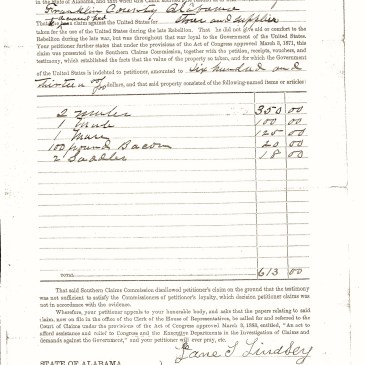 in the State of Alabama, and that
Franklin County Alabama
claim against the United States for stores and supplies
taken for the use of the United States during the late Rebellion. That he did not give aid or comfort to the
Rebellion during the late war, but was throughout that war loyal to the Government of the United States.
Your petitioner further states that under the provisions of the Act of Congress approved March 3, 1871, this
claim was presented to the Southern Claims Commission, together with the petition, receipts, vouchers, and
testimony, which established the facts that the value of the property as taken, and for which the Government
of the United States is indebted to petitioner, amounted to six hundred and
thirteen dollars, and that said property consisted of the following items or articles:
2 mules 350 00
1 Mule 100 00
1 Mare 125 00
100 pound Bacon 20 00
2 Saddles 18 00
TOTAL 613 00
That said Southern Claims Commission disallowed petitioner's claim on the ground that the testimony
was not sufficient to satisfy the Commissioners of petitioner's loyalty, which decision petitioner claims was
not in accordance with the evidence.
Wherefore, your petitioner appeals to your honorable body, and asks that the papers relating to said
claim, now on file in the office of the Clerk of the House of Representatives, be called for and referred to the
Court of Claims under the provisions of the Act of Congress approved March 3, 1883, entitled, "An act to
afford assistance and relief to Congress and the Executive Departments in the Investigation of Claims and
demands against the Government," and your petitioner will ever pray, etc.
Jane T Lindsey
STATE OF ALABAMA